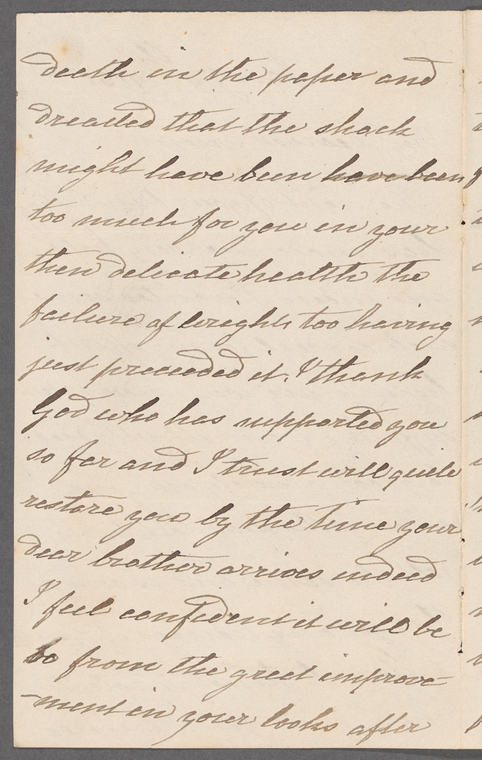 death in the paper and
dreaded that the shock
might have been have been
too much for you in your
then delicate health the
failure of Wrights too having
just preceeded it. I thank
God who has supported you
so far and I trust will quite
restore you by the time your
dear brother arrives indeed
I feel confident it will be
so from the great improve-
-ment in your looks after